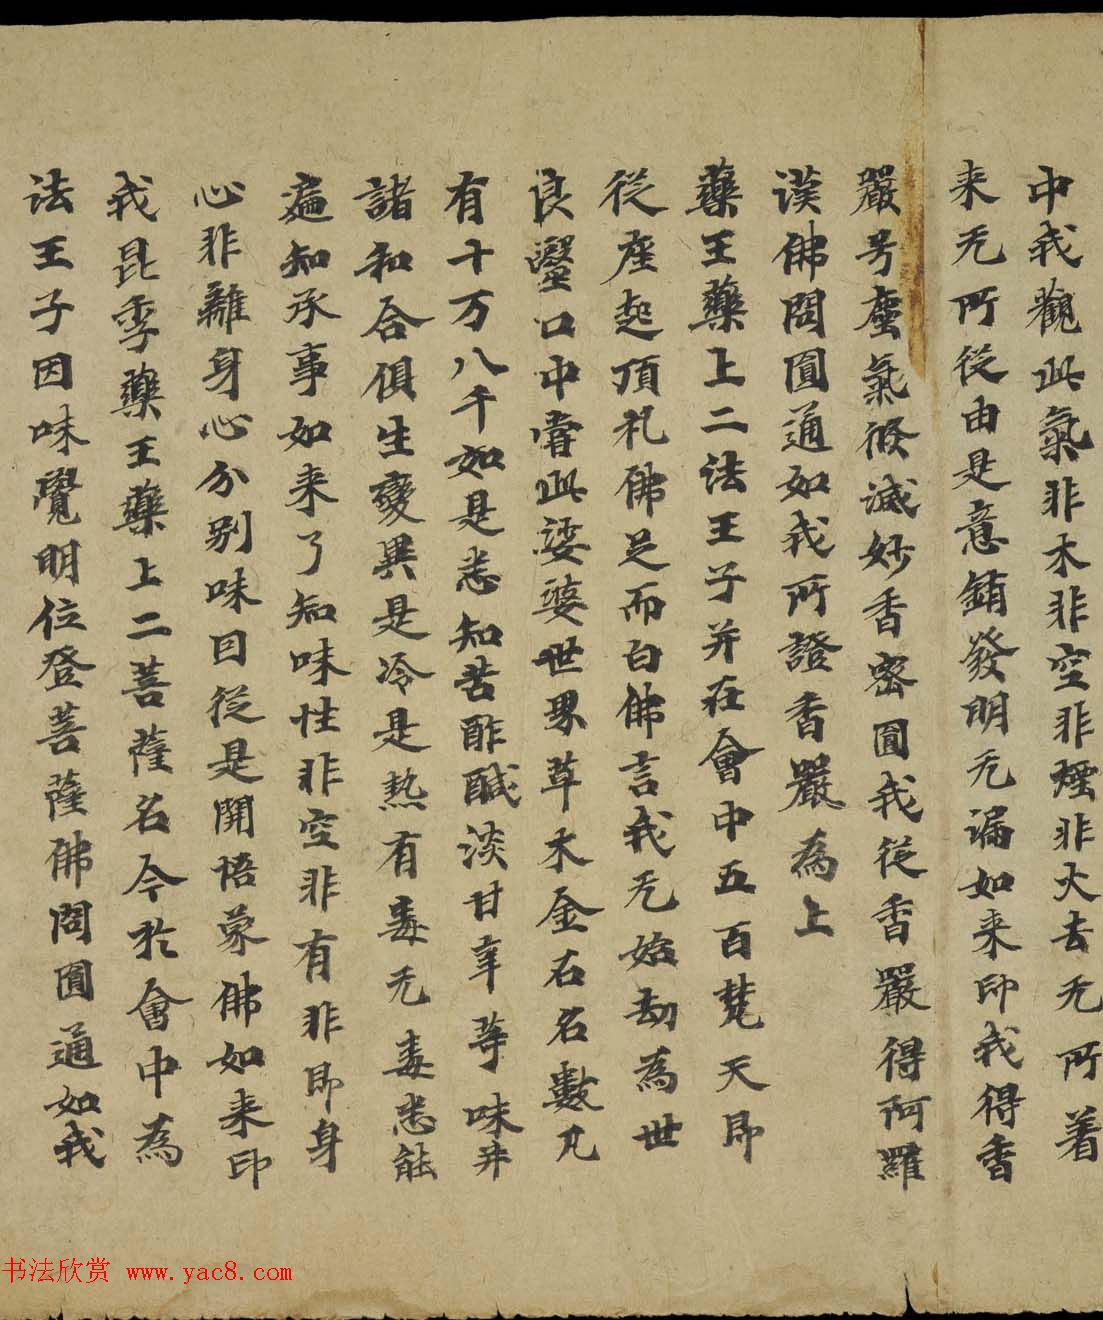 中我觀此氣非木非空非煙非火去无所着
来无所從由是意銷發明无漏如来印我得香
嚴号塵氣倐滅妙香密圓我從香嚴得阿羅
漢佛問圓通如我所證香嚴為上
藥王藥上二法王子并在會中五百梵天即
從座起頂礼佛足而白佛言我无始劫為世
良醫口中嘗此娑婆世界草木金石名數凡
有十万八千如是悉知苦酢醎淡甘辛等味并
諸和合俱生變異是冷是熱有毒无毒悉能
遍知承事如来了知味性非空非有非即身
心非離身心分别味因從是開悟蒙佛如来印
我昆季藥王藥上二菩薩名今於會中為
法王子因味覺明位登菩薩佛問圓通如我
书法欣赏 www.yac8.com